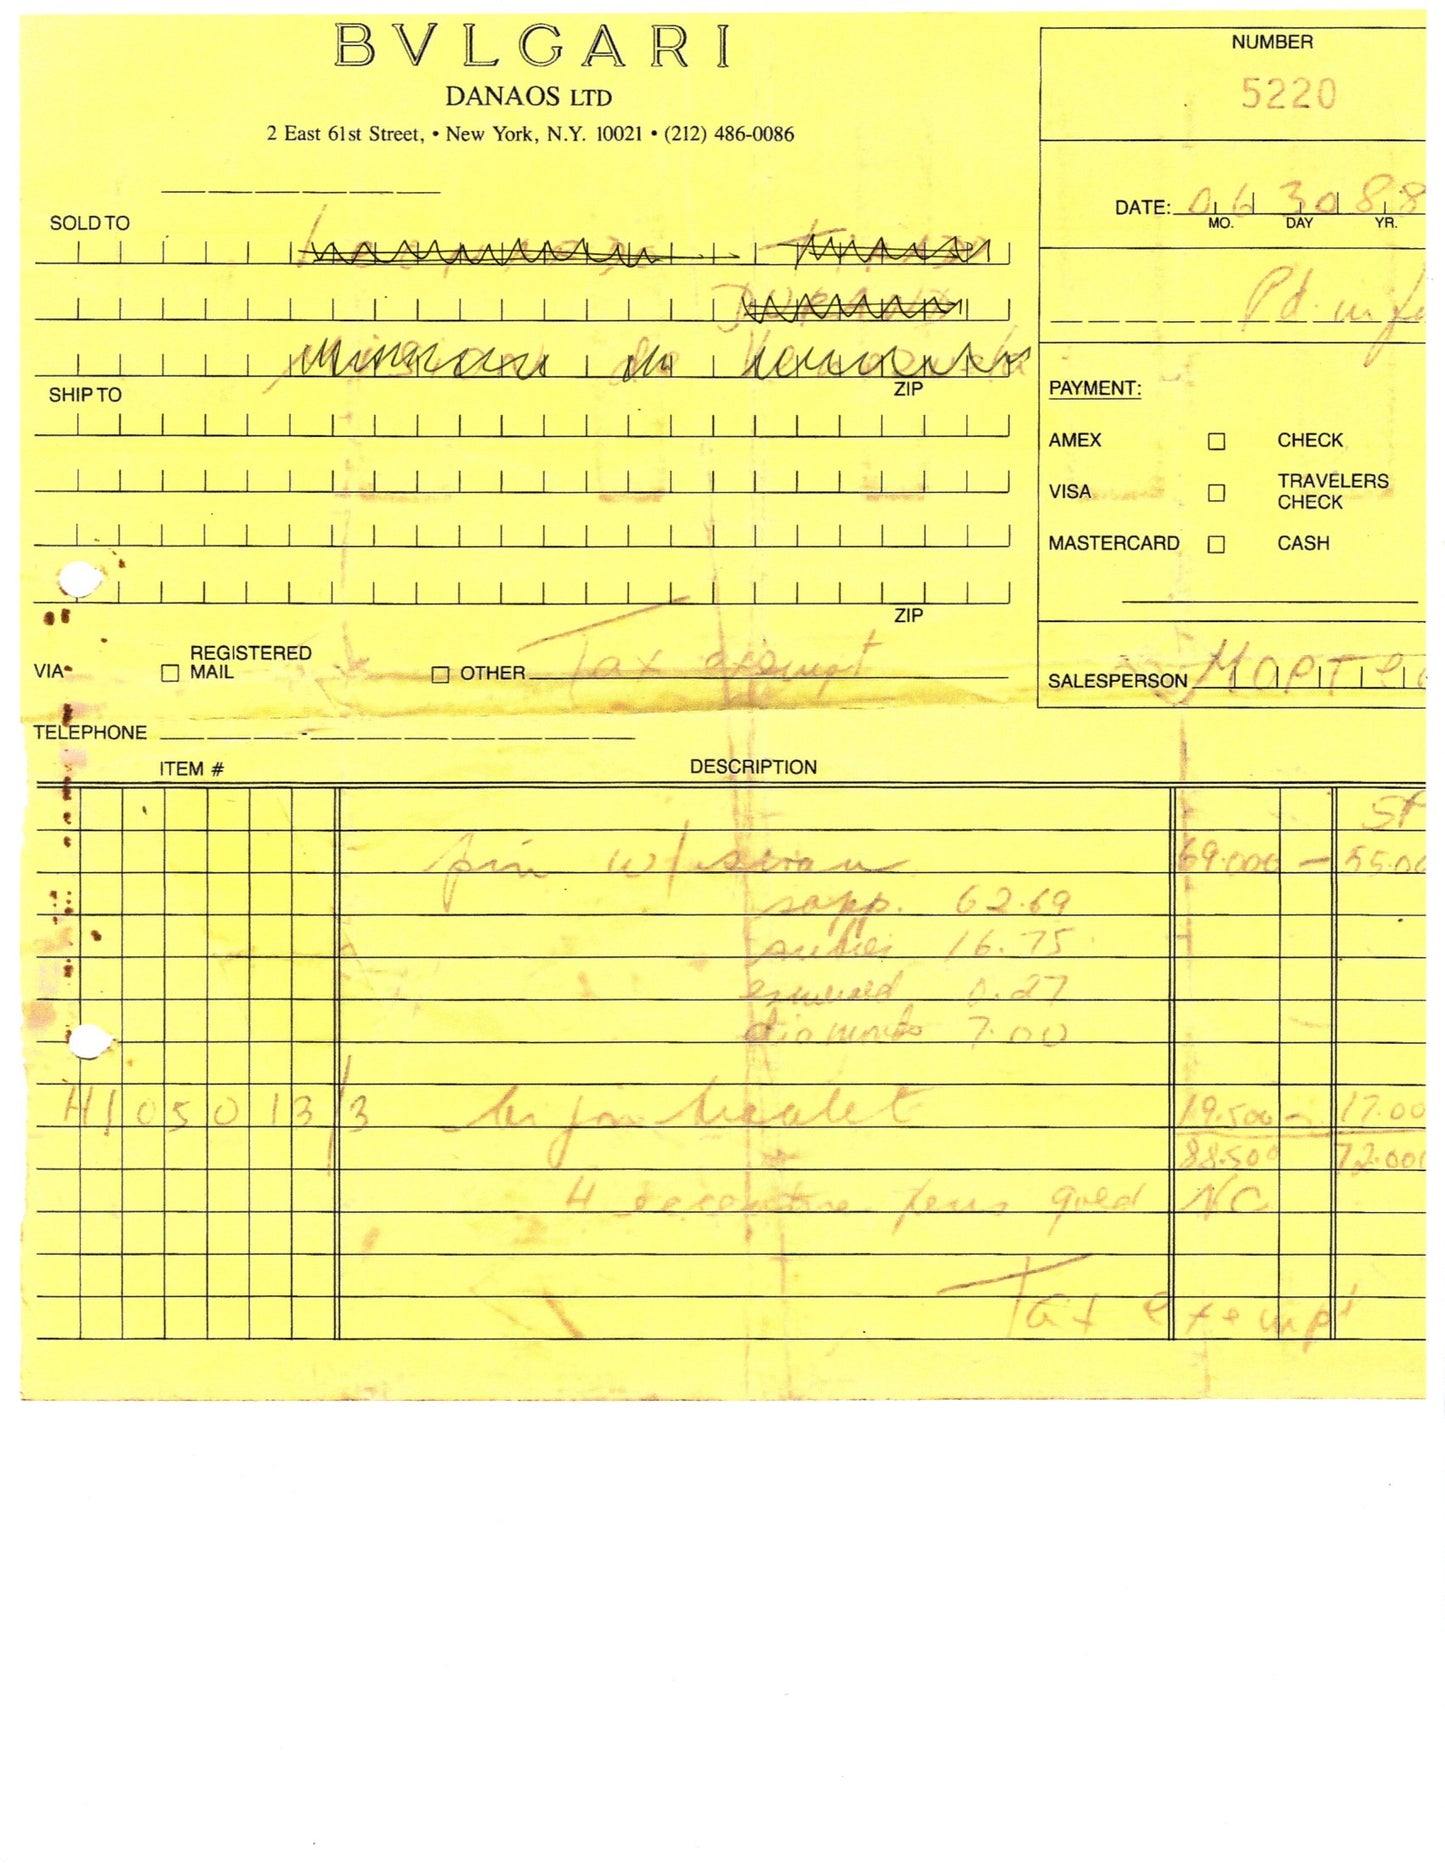 BVLGARI
DANAOS LTD
2 East 61st Street, • New York, N.Y. 10021 • (212) 486-0086
NUMBER
5220
DATE: 06 30 88
MO. DAY YR.
SOLD TO
Pd. in
ZIP
SHIP TO
PAYMENT:
AMEX CHECK
VISA TRAVELERS CHECK
MASTERCARD CASH
ZIP
VIA REGISTERED MAIL OTHER Tax exempt
SALESPERSON
TELEPHONE
ITEM # DESCRIPTION
SP
pin w/ 69.000 — 55.00
sapp. 62.69
rubies 16.75
emerald 0.27
diamonds 7.00
H1050133 19.500 — 17.00
88.500 72.000
4 executive pens gold NC
Tax exempt